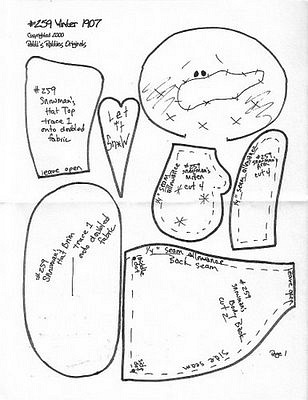 #259 Winter 1907
Copyrighted 2000
Raggedy Originals
#259
Snowman's
Hat Top
trace 1
onto doubled
fabric
leave open
Let
it
Snow
1/4" seam
allowance
#259
Snowman's
Mitten
cut 4
1/4" seam allowance
#259
Snowman's
cut 4
#259
Snowman's
Hat Brim
trace 1
onto doubled
fabric
1/4" seam allowance
back seam
#259
Snowman's
Body Back
cut 2
side seam
leave open
Page 1